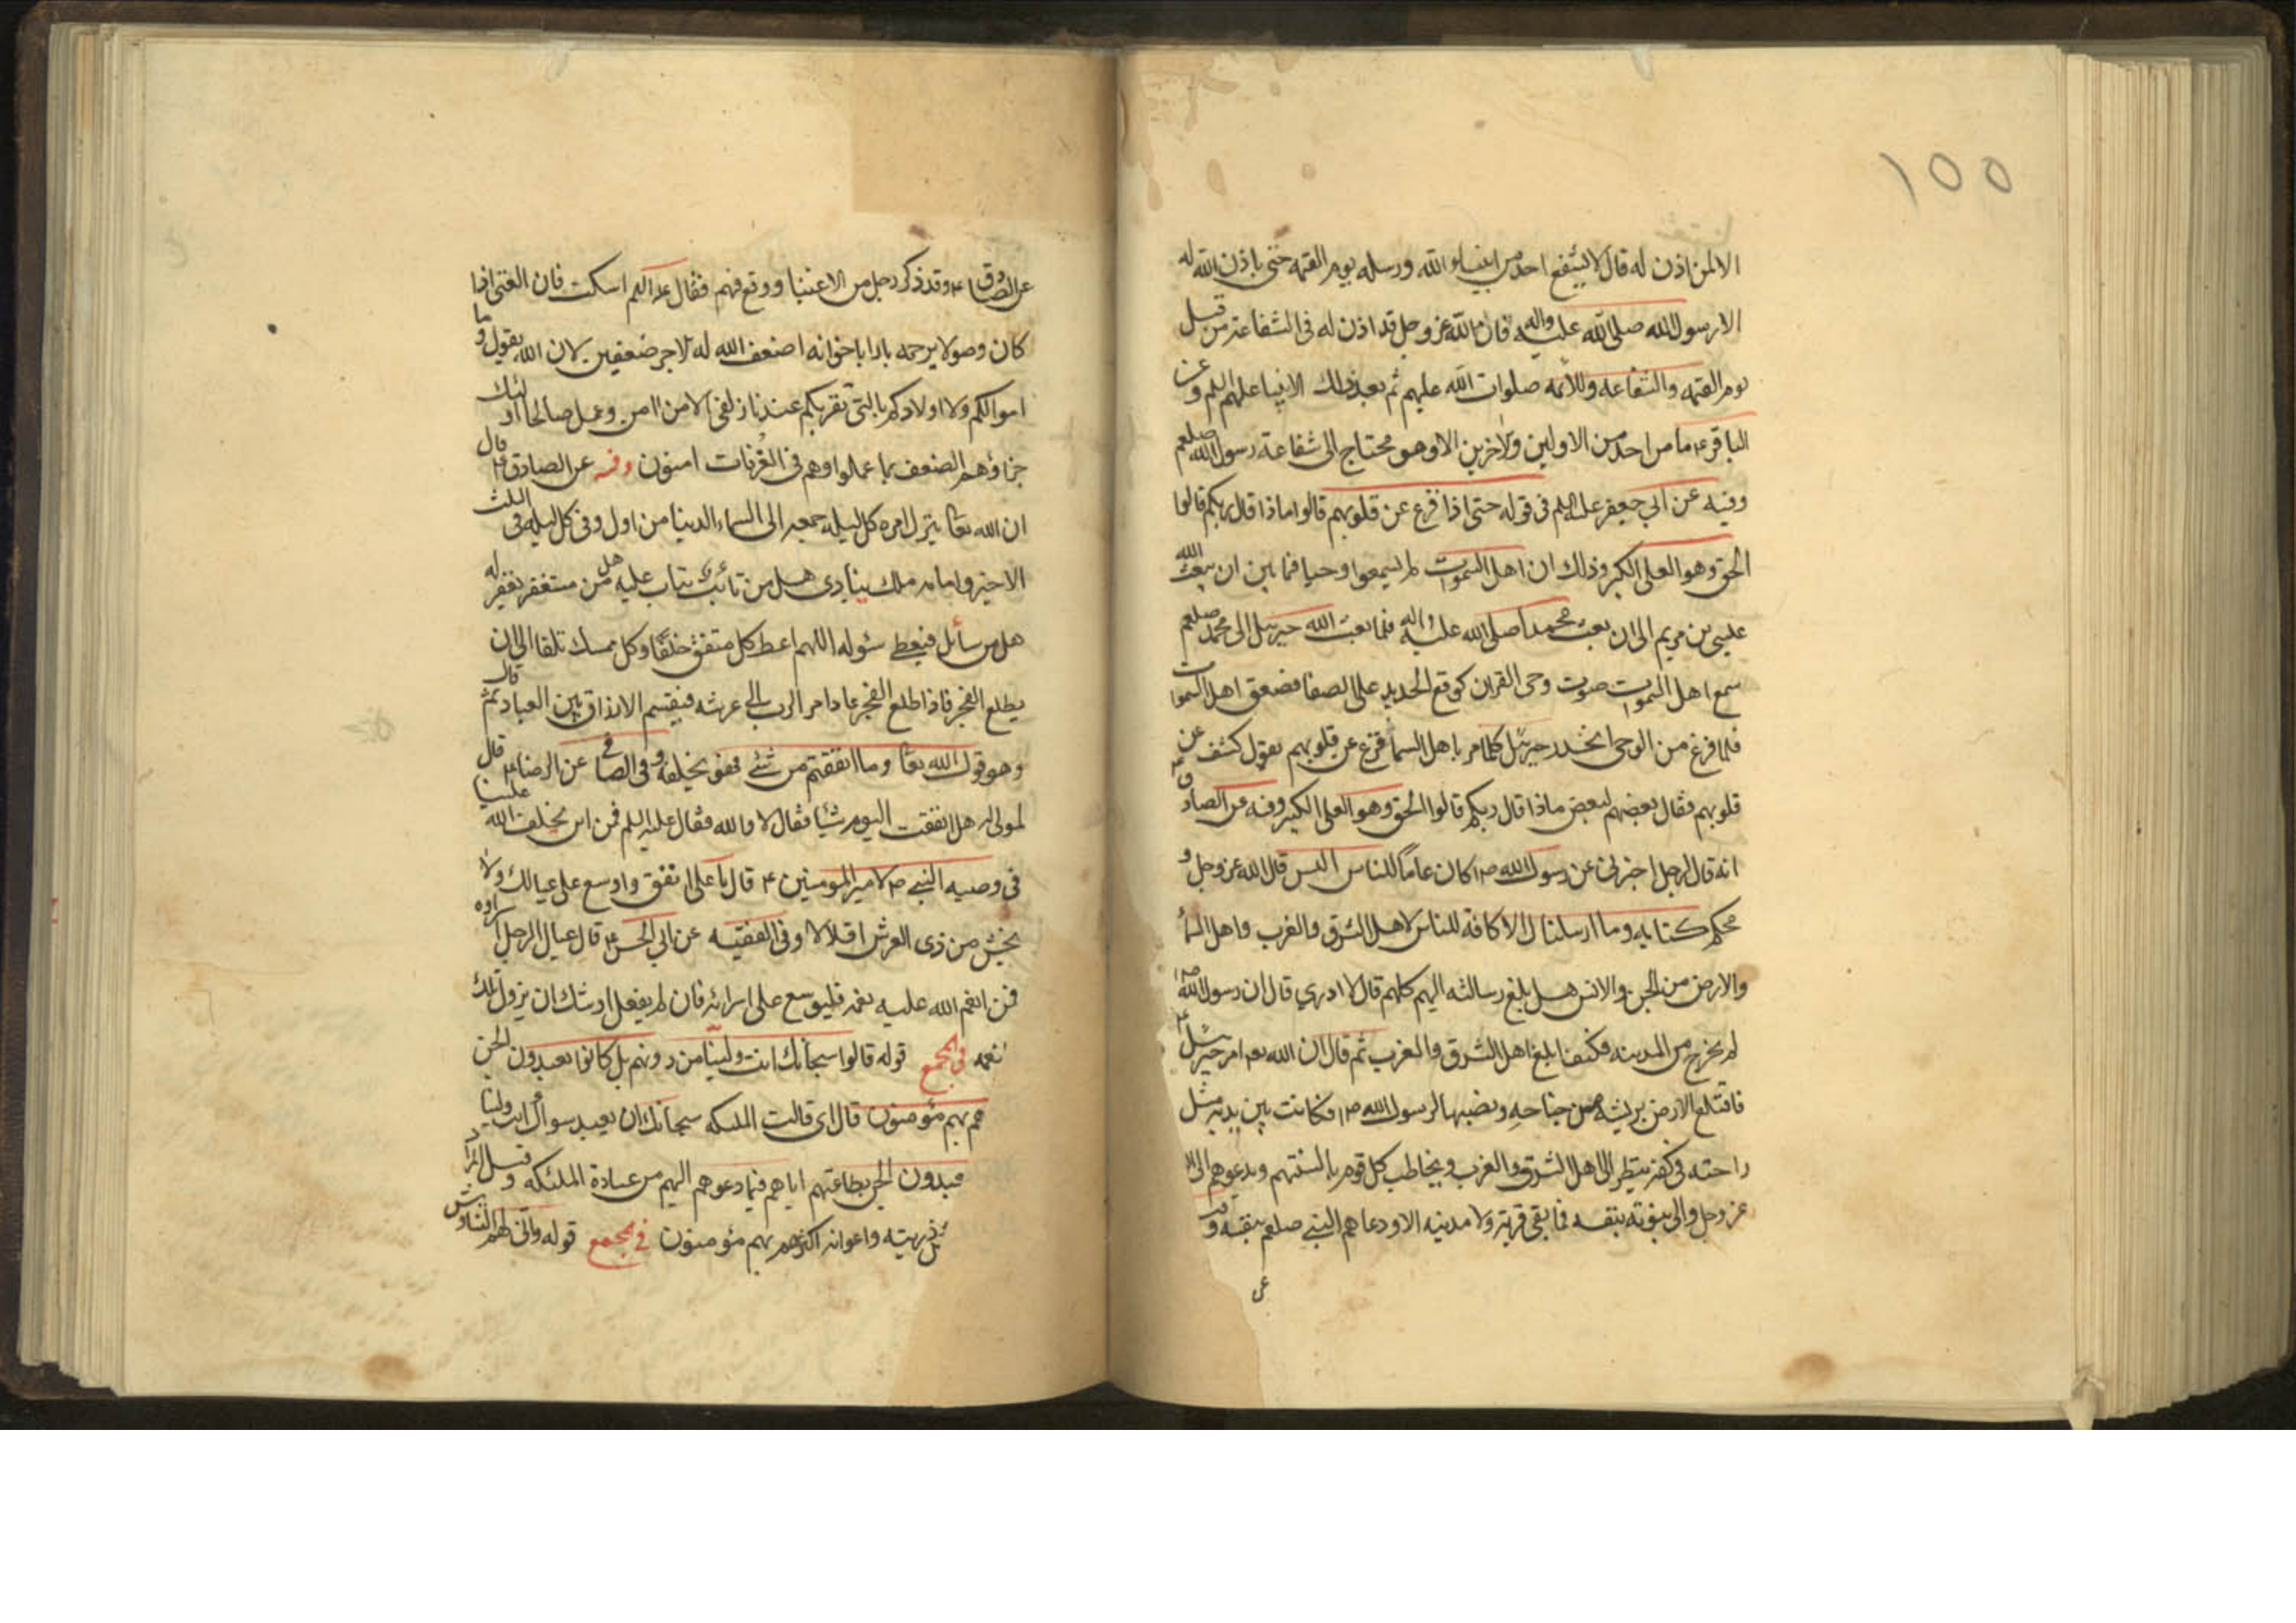 ١٥٥
الا لمن اذن له قال لا يشفع احد من انبياء الله ورسله يوم القيمه حتى ياذن الله له
الا رسول الله صلى الله عليه واله فان الله عز وجل قد اذن له فى الشفاعة من قبل
يوم القيمه والشفاعه له وللائمه صلوات الله عليهم ثم بعد ذلك الانبيا عليهم السلم وعن
الباقر ء ما من احد من الاولين والاخرين الا وهو محتاج الى شفاعة رسول الله صلعم
وفيه عن ابي جعفر عليه السلم فى قوله حتى اذا فزع عن قلوبهم قالوا ماذا قال ربكم قالوا
الحق وهو العلى الكبير وذلك ان اهل السموات لم يسمعوا وحيا فيما بين ان بعث الله
عيسى بن مريم الى ان بعث محمدا صلى الله عليه واله فلما بعث الله جبرئيل الى محمد صلعم
سمع اهل السموات صوت وحى القران كوقع الحديد على الصفا فصعق اهل السموات
فلما فرغ من الوحى انحدر جبرئيل كلما مر باهل السماء فزع عن قلوبهم يقول كشف عن
قلوبهم فقال بعضهم لبعض ماذا قال ربكم قالوا الحق وهو العلى الكبير وفيه عن الصادق ء
انه قال لرجل اخبرنى عن رسول الله ص كان عاما للناس اليس قال الله عز وجل و
محكم كتابه وما ارسلناك الا كافة للناس لاهل الشرق والغرب واهل السماء
والارض من الجن والانس هل بلغ رسالته اليهم كلهم قال لا ادري قال ان رسول الله ص
لم يخرج من المدينه فكيف ابلغ اهل الشرق والمغرب ثم قال ان الله امر جبرئيل ء
فاقتلع الارض بريشة من جناحه ونصبها لرسول الله ص فكانت بين يديه مثل
راحته فى كفه ينظر الى اهل الشرق والغرب ويخاطب كل قوم بالسنتهم ويدعوهم الى الله
عز وجل والى نبوته بنفسه فما بقى قرية ولا مدينه الا ودعاهم النبى صلعم بنفسه وفيه
عن
عن الصادق ء وقد ذكر رجل من الاغنيا ووقع فيهم فقال عليه السلم اسكت فان الغنى اذا
كان وصولا برحمه بارا باخوانه اضعف الله له الاجر ضعفين لان الله يقول وما
اموالكم ولا اولادكم بالتى تقربكم عندنا زلفى الا من امن وعمل صالحا اولئك
جزاؤهم الضعف بما عملوا وهم فى الغرفات امنون وفيه عن الصادق ء قال
ان الله تعا ينزل امره كل ليله جمعه الى السماء الدنيا من اول وفى كل ليله فى الثلث
الاخير وامامه ملك ينادى هل من تائب يتاب عليه هل من مستغفر يغفر له
هل من سائل فيعطى سئوله اللهم اعط كل متفق خلفا وكل ممسك تلفا الى ان
يطلع الفجر فاذا طلع الفجر عاد امر الرب الى عرشه فيقسم الارزاق بين العباد ثم قال
وهو قول الله تعا وما انفقتم من شئ فهو يخلفه وفى الصافى عن الرضا ء قال
لمولى له هل انفقت اليوم شيئا فقال لا والله فقال عليه السلم فمن اين يخلف الله علينا
فى وصيه النبى ص لامير المومنين ء قال يا على انفق واوسع على عيالك ولا
تخش من ذى العرش اقلالا وفى الفقيه عن ابي الحسن ء قال عيال الرجل اسراؤه
فمن انعم الله عليه نعمة فليوسع على اسرائه فان لم يفعل اوشك ان يزول تلك
النعمه فى المجمع قوله قالوا سبحانك انت ولينا من دونهم بل كانوا يعبدون الجن
هم بهم مؤمنون قال اى قالت الملئكه سبحانك ان نعبد سواك انت ولينا
يعبدون الجن بطاعتهم اياهم فيما دعوهم اليهم من عبادة الملئكه وقيل المراد
ذريته واعوانه اكثرهم بهم مؤمنون فى المجمع قوله وانى لهم التناوش